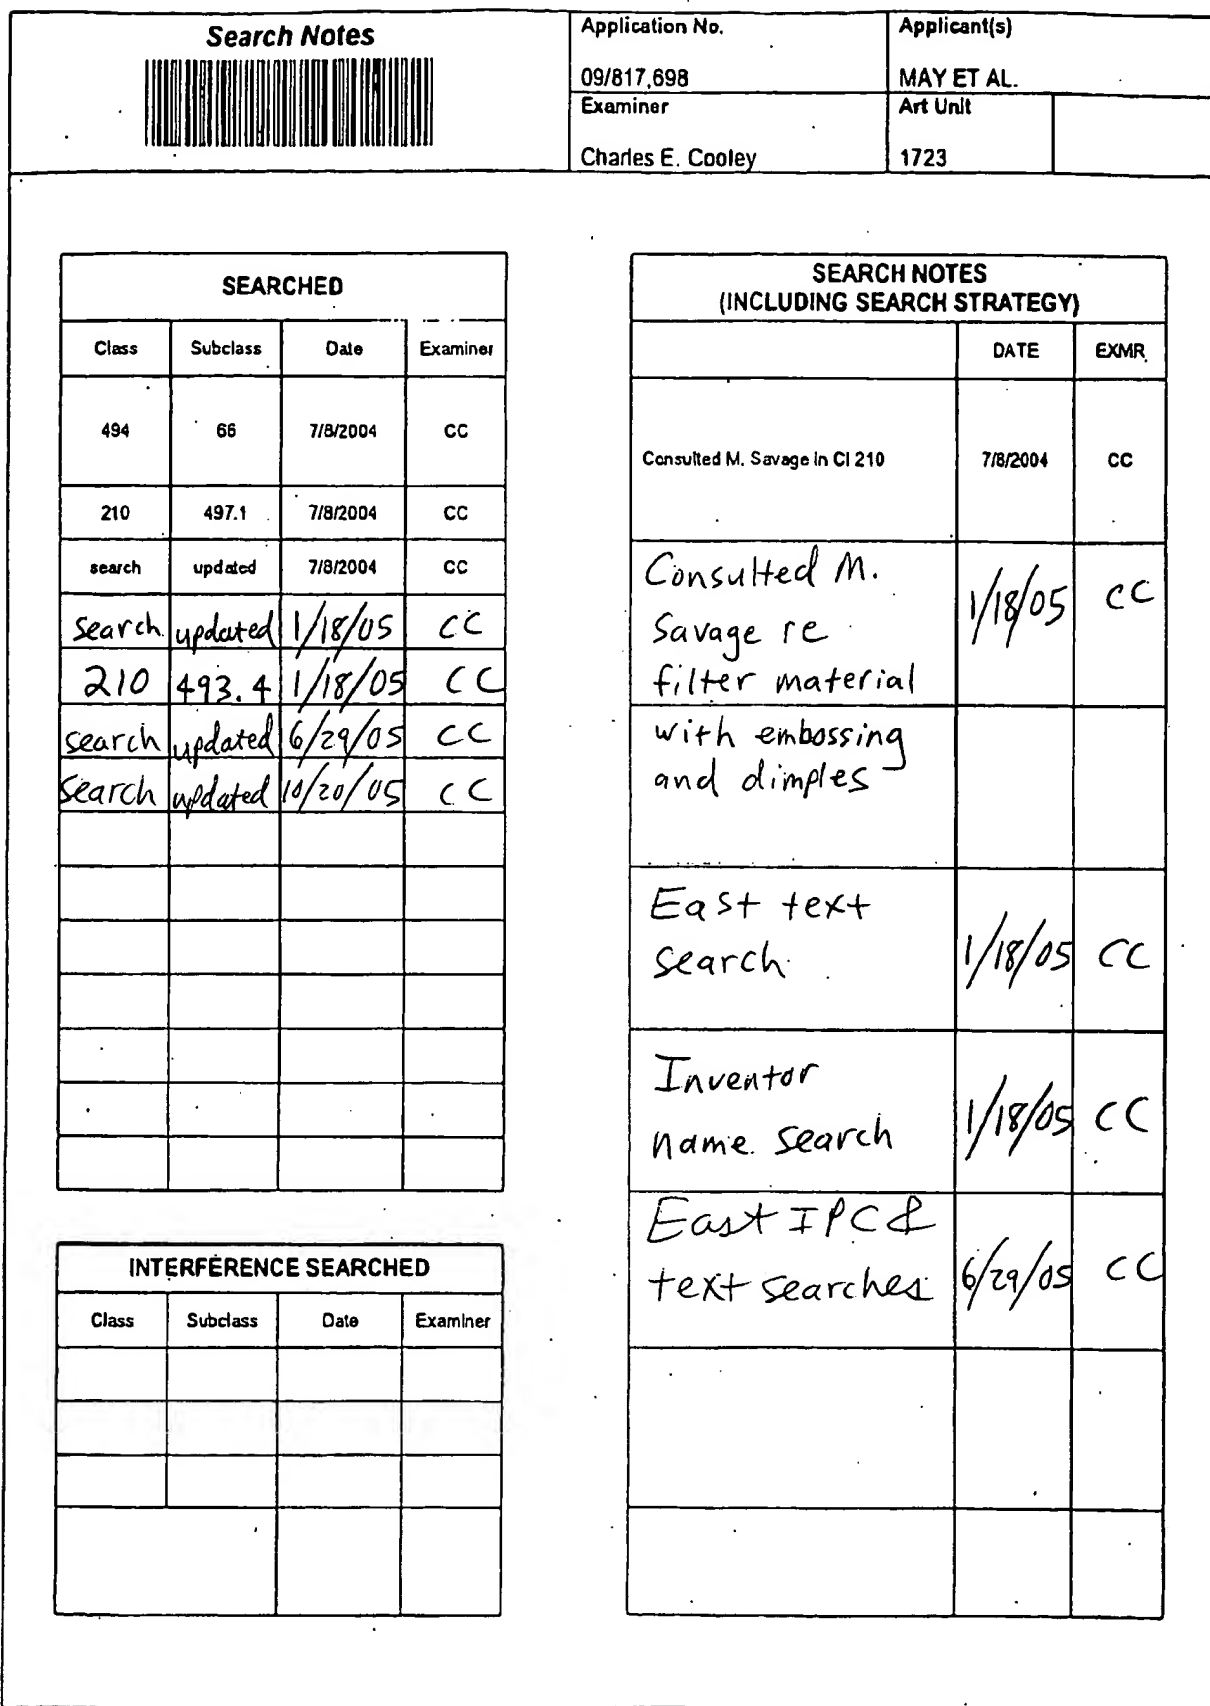 Search Notes
Application No.
Applicant(s)
09/817,698
MAY ET AL.
Examiner
Art Unit
Charles E. Cooley
1723
SEARCHED
Class Subclass Date Examiner
494 66 7/8/2004 CC
210 497.1 7/8/2004 CC
search updated 7/8/2004 CC
search updated 1/18/05 CC
210 493.4 1/18/05 CC
search updated 6/29/05 CC
search updated 10/20/05 CC
INTERFERENCE SEARCHED
Class Subclass Date Examiner
SEARCH NOTES
(INCLUDING SEARCH STRATEGY)
DATE EXMR
Consulted M. Savage in Cl 210 7/8/2004 CC
Consulted M.
Savage re 1/18/05 CC
filter material
with embossing
and dimples
East text
search 1/18/05 CC
Inventor
name search 1/18/05 CC
East IPC &
text searches 6/29/05 CC